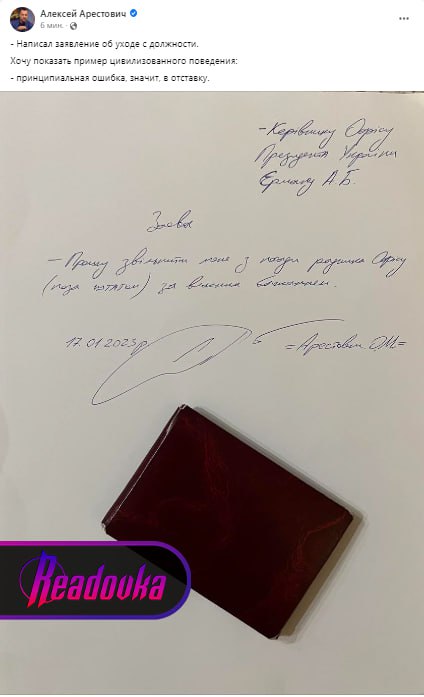 Алексей Арестович
6 мин. ·
- Написал заявление об уходе с должности.
Хочу показать пример цивилизованного поведения:
- принципиальная ошибка, значит, в отставку.
- Керівнику Офісу
Президента України
Єрмаку А.Б.
Заява
- Прошу звільнити мене з посади радника Офісу
(поза штатом) за власним бажанням.
17.01.2023р
=Арестович О.М.=
Readovka